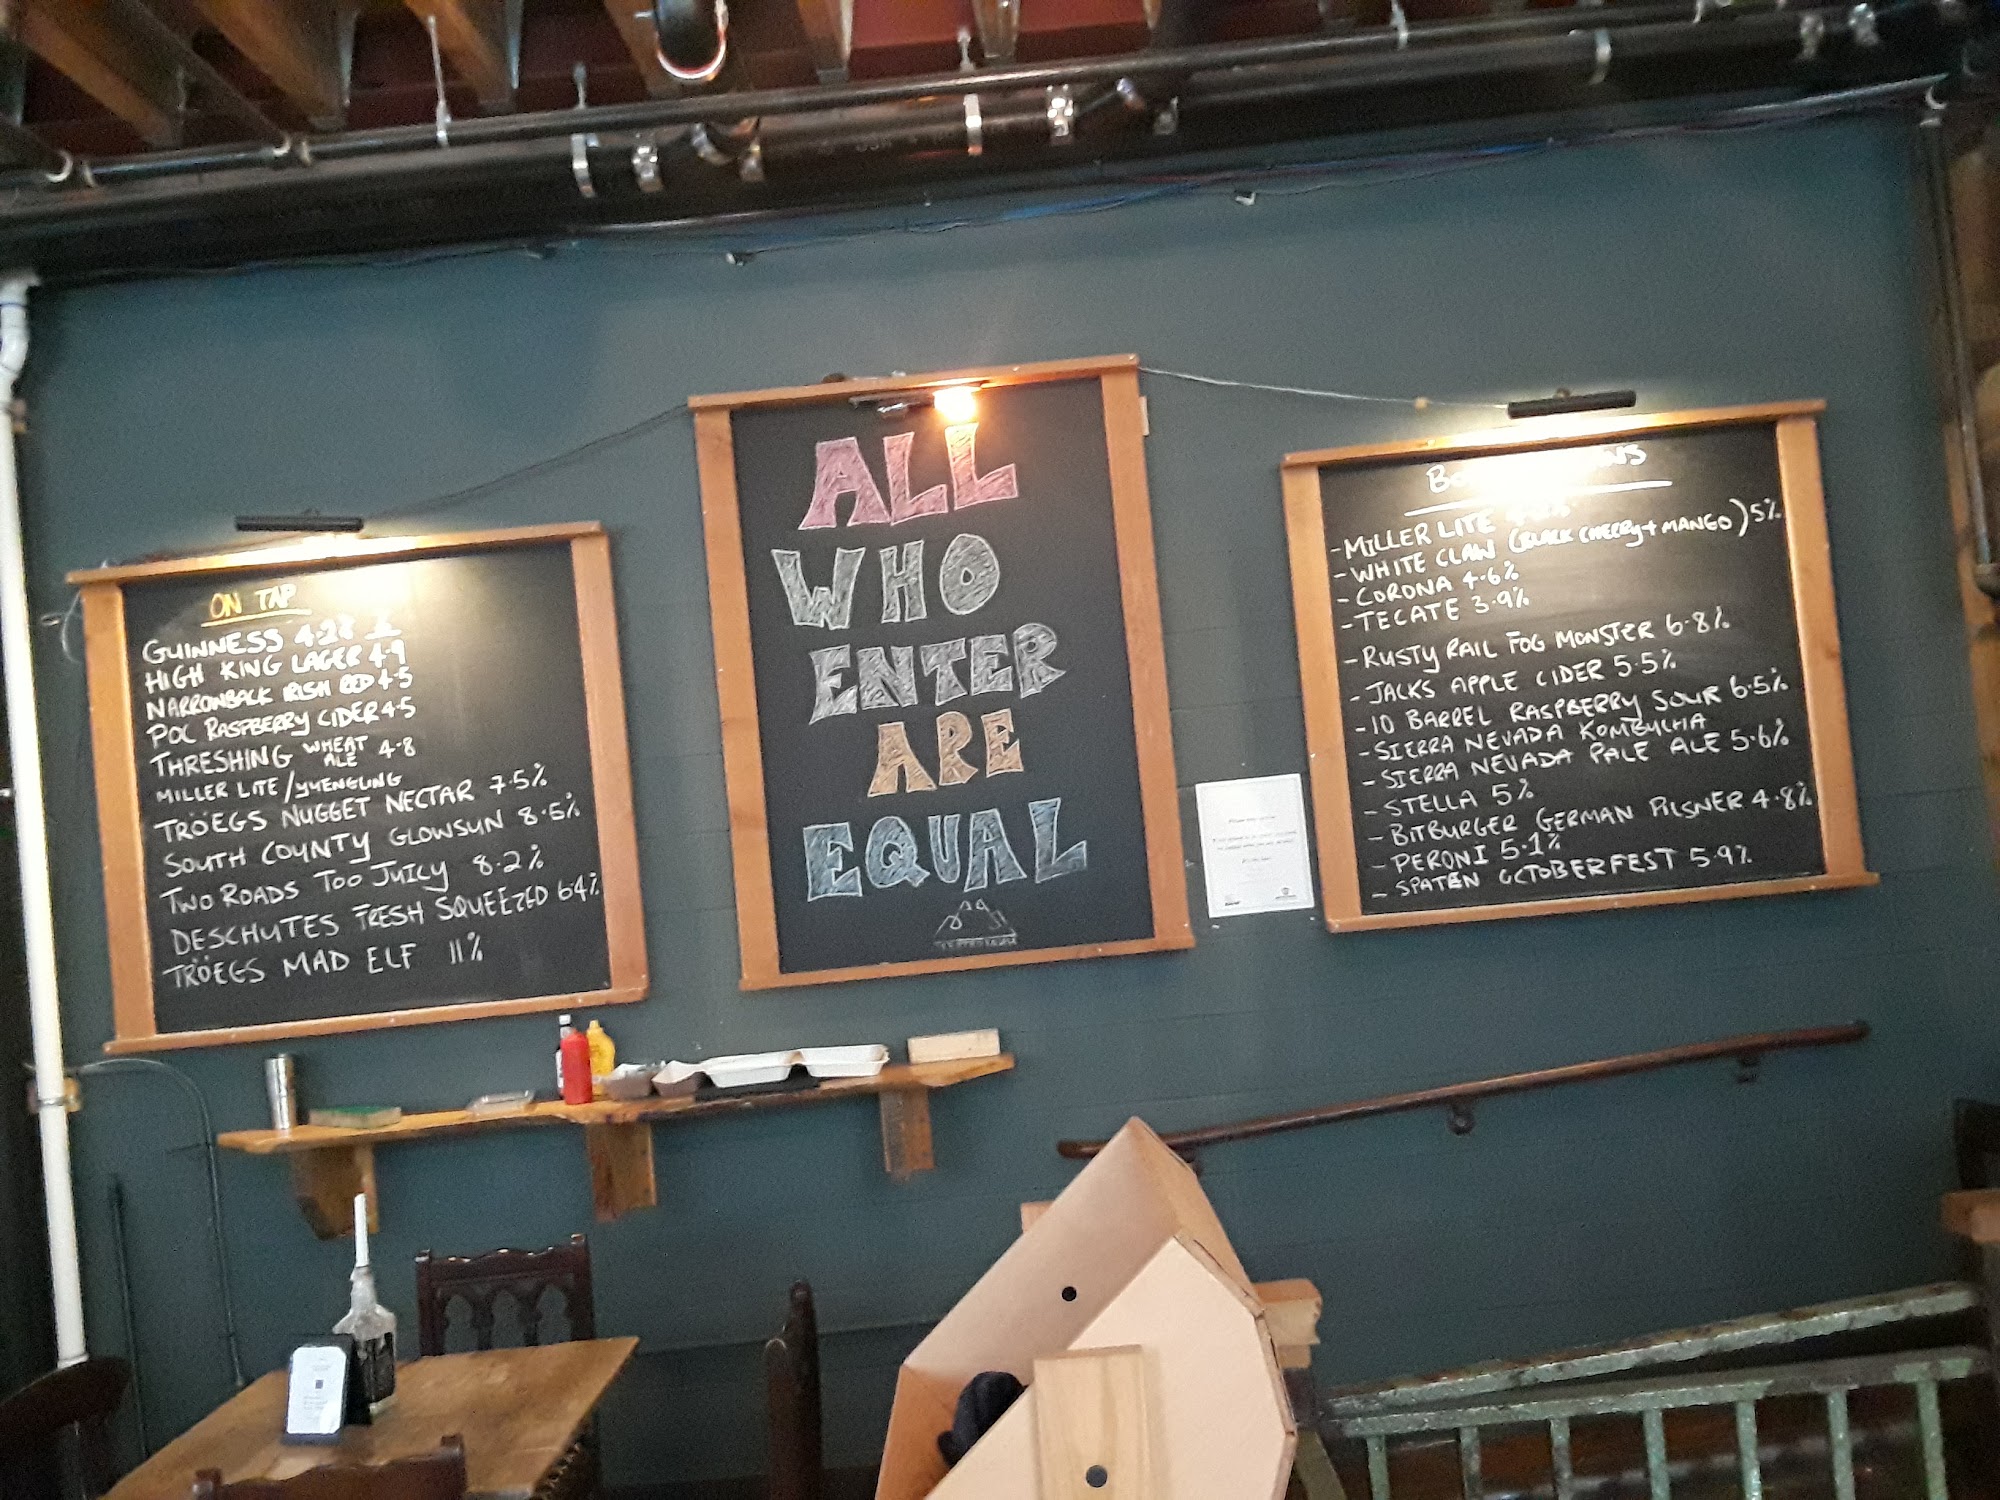 ON TAP
GUINNESS 4.28
HIGH KING LAGER 4.9
NARROWBACK IRISH RED 4.5
POC RASPBERRY CIDER 4.5
THRESHING WHEAT ALE 4.8
MILLER LITE/YUENGLING
TRÖEGS NUGGET NECTAR 7.5%
SOUTH COUNTY GLOWSUN 8.5%
TWO ROADS TOO JUICY 8.2%
DESCHUTES FRESH SQUEEZED 6.4%
TRÖEGS MAD ELF 11%
ALL
WHO
ENTER
ARE
EQUAL
- MILLER LITE
- WHITE CLAW (BLACK CHERRY + MANGO) 5%
- CORONA 4.6%
- TECATE 3.9%
- RUSTY RAIL FOG MONSTER 6.8%
- JACKS APPLE CIDER 5.5%
- 10 BARREL RASPBERRY SOUR 6.5%
- SIERRA NEVADA KOMBUCHA
- SIERRA NEVADA PALE ALE 5.6%
- STELLA 5%
- BITBURGER GERMAN PILSNER 4.8%
- PERONI 5.1%
- SPATEN OCTOBERFEST 5.9%